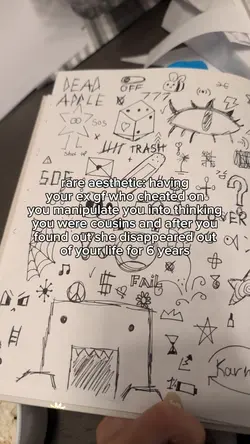 DEAD
APPLE
OFF
777
SOS
TRASH
rare aesthetic: having
your ex gf who cheated on
you manipulate you into thinking
you were cousins and after you
found out she disappeared out
of your life for 6 years
FAIL
Karm